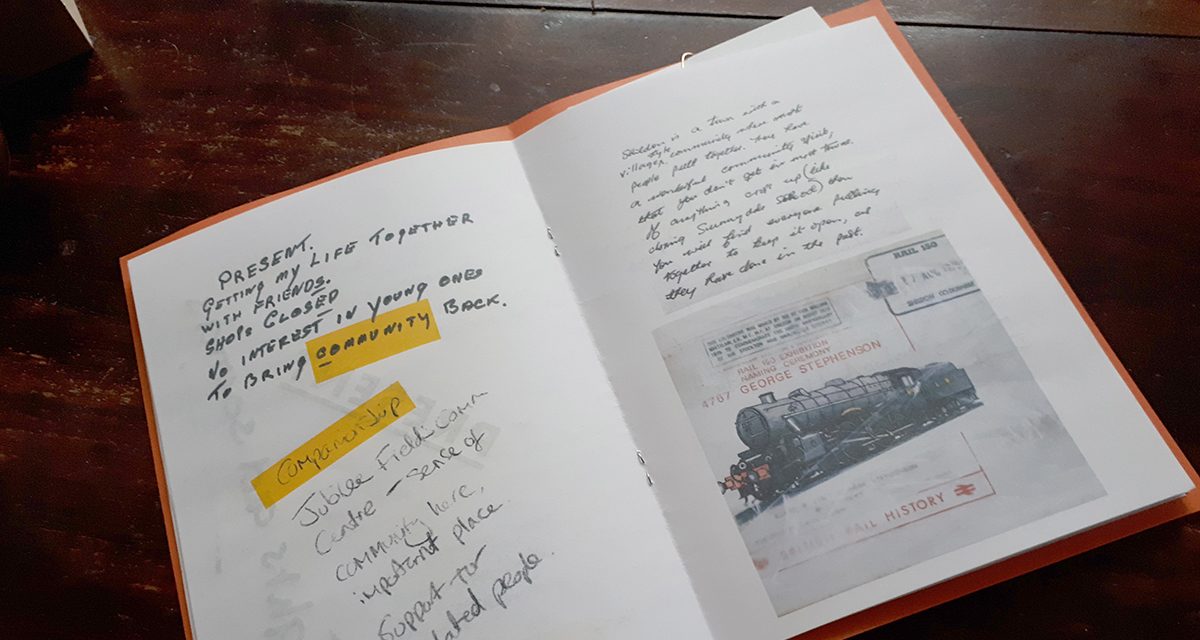 PRESENT.
GETTING MY LIFE TOGETHER
WITH FRIENDS.
SHOPS CLOSED
NO INTEREST IN YOUNG ONES
TO BRING COMMUNITY BACK.
Companionship
Jubilee Fields Comm
Centre – sense of
community here,
important place
support for
lated people.
Shildon is a town with a
village style community where most
people pull together. They have
a wonderful community spirit,
that you don't get in most towns.
If anything crops up (like
closing Sunnydale School) then
you will find everyone pulling
together to keep it open, as
they have done in the past.
RAIL 150
RAIL 150 EXHIBITION
NAMING CEREMONY
4767 GEORGE STEPHENSON
BRITISH RAIL HISTORY